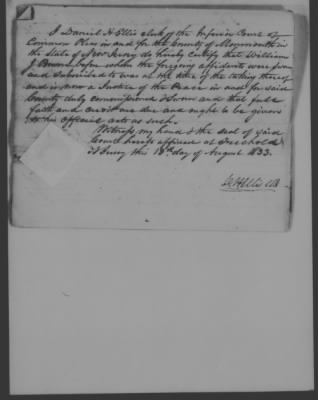 I Daniel H Ellis clerk of the Inferior Court of
Common Pleas in and for the County of Monmouth in
the State of New Jersey do hereby certify that William
J Bowne before whom the foregoing affidavits were sworn
and subscribed to was at the time of the taking thereof
and is now a Justice of the Peace in and for said
County duly commissioned & sworn and that full
faith and credit are due and ought to be given
to his official acts as such.
Witness my hand & the seal of said
Court hereto affixed at Freehold
N Jersey this 18th day of August 1833.
D H Ellis clk